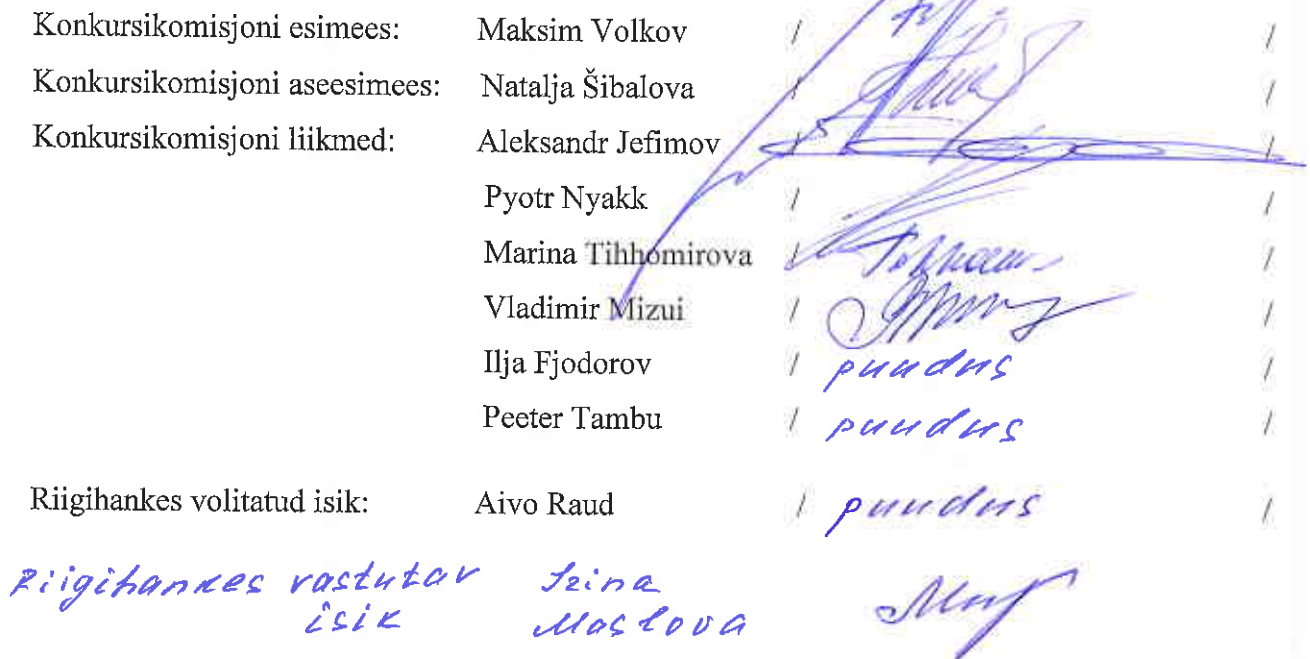 Konkursikomisjoni esimees: Maksim Volkov / /
Konkursikomisjoni aseesimees: Natalja Šibalova / /
Konkursikomisjoni liikmed: Aleksandr Jefimov / /
Pyotr Nyakk / /
Marina Tihhomirova / /
Vladimir Mizui / /
Ilja Fjodorov / puudus /
Peeter Tambu / puudus /
Riigihankes volitatud isik: Aivo Raud / puudus /
Riigihankes vastutav Irina
isik Maslova